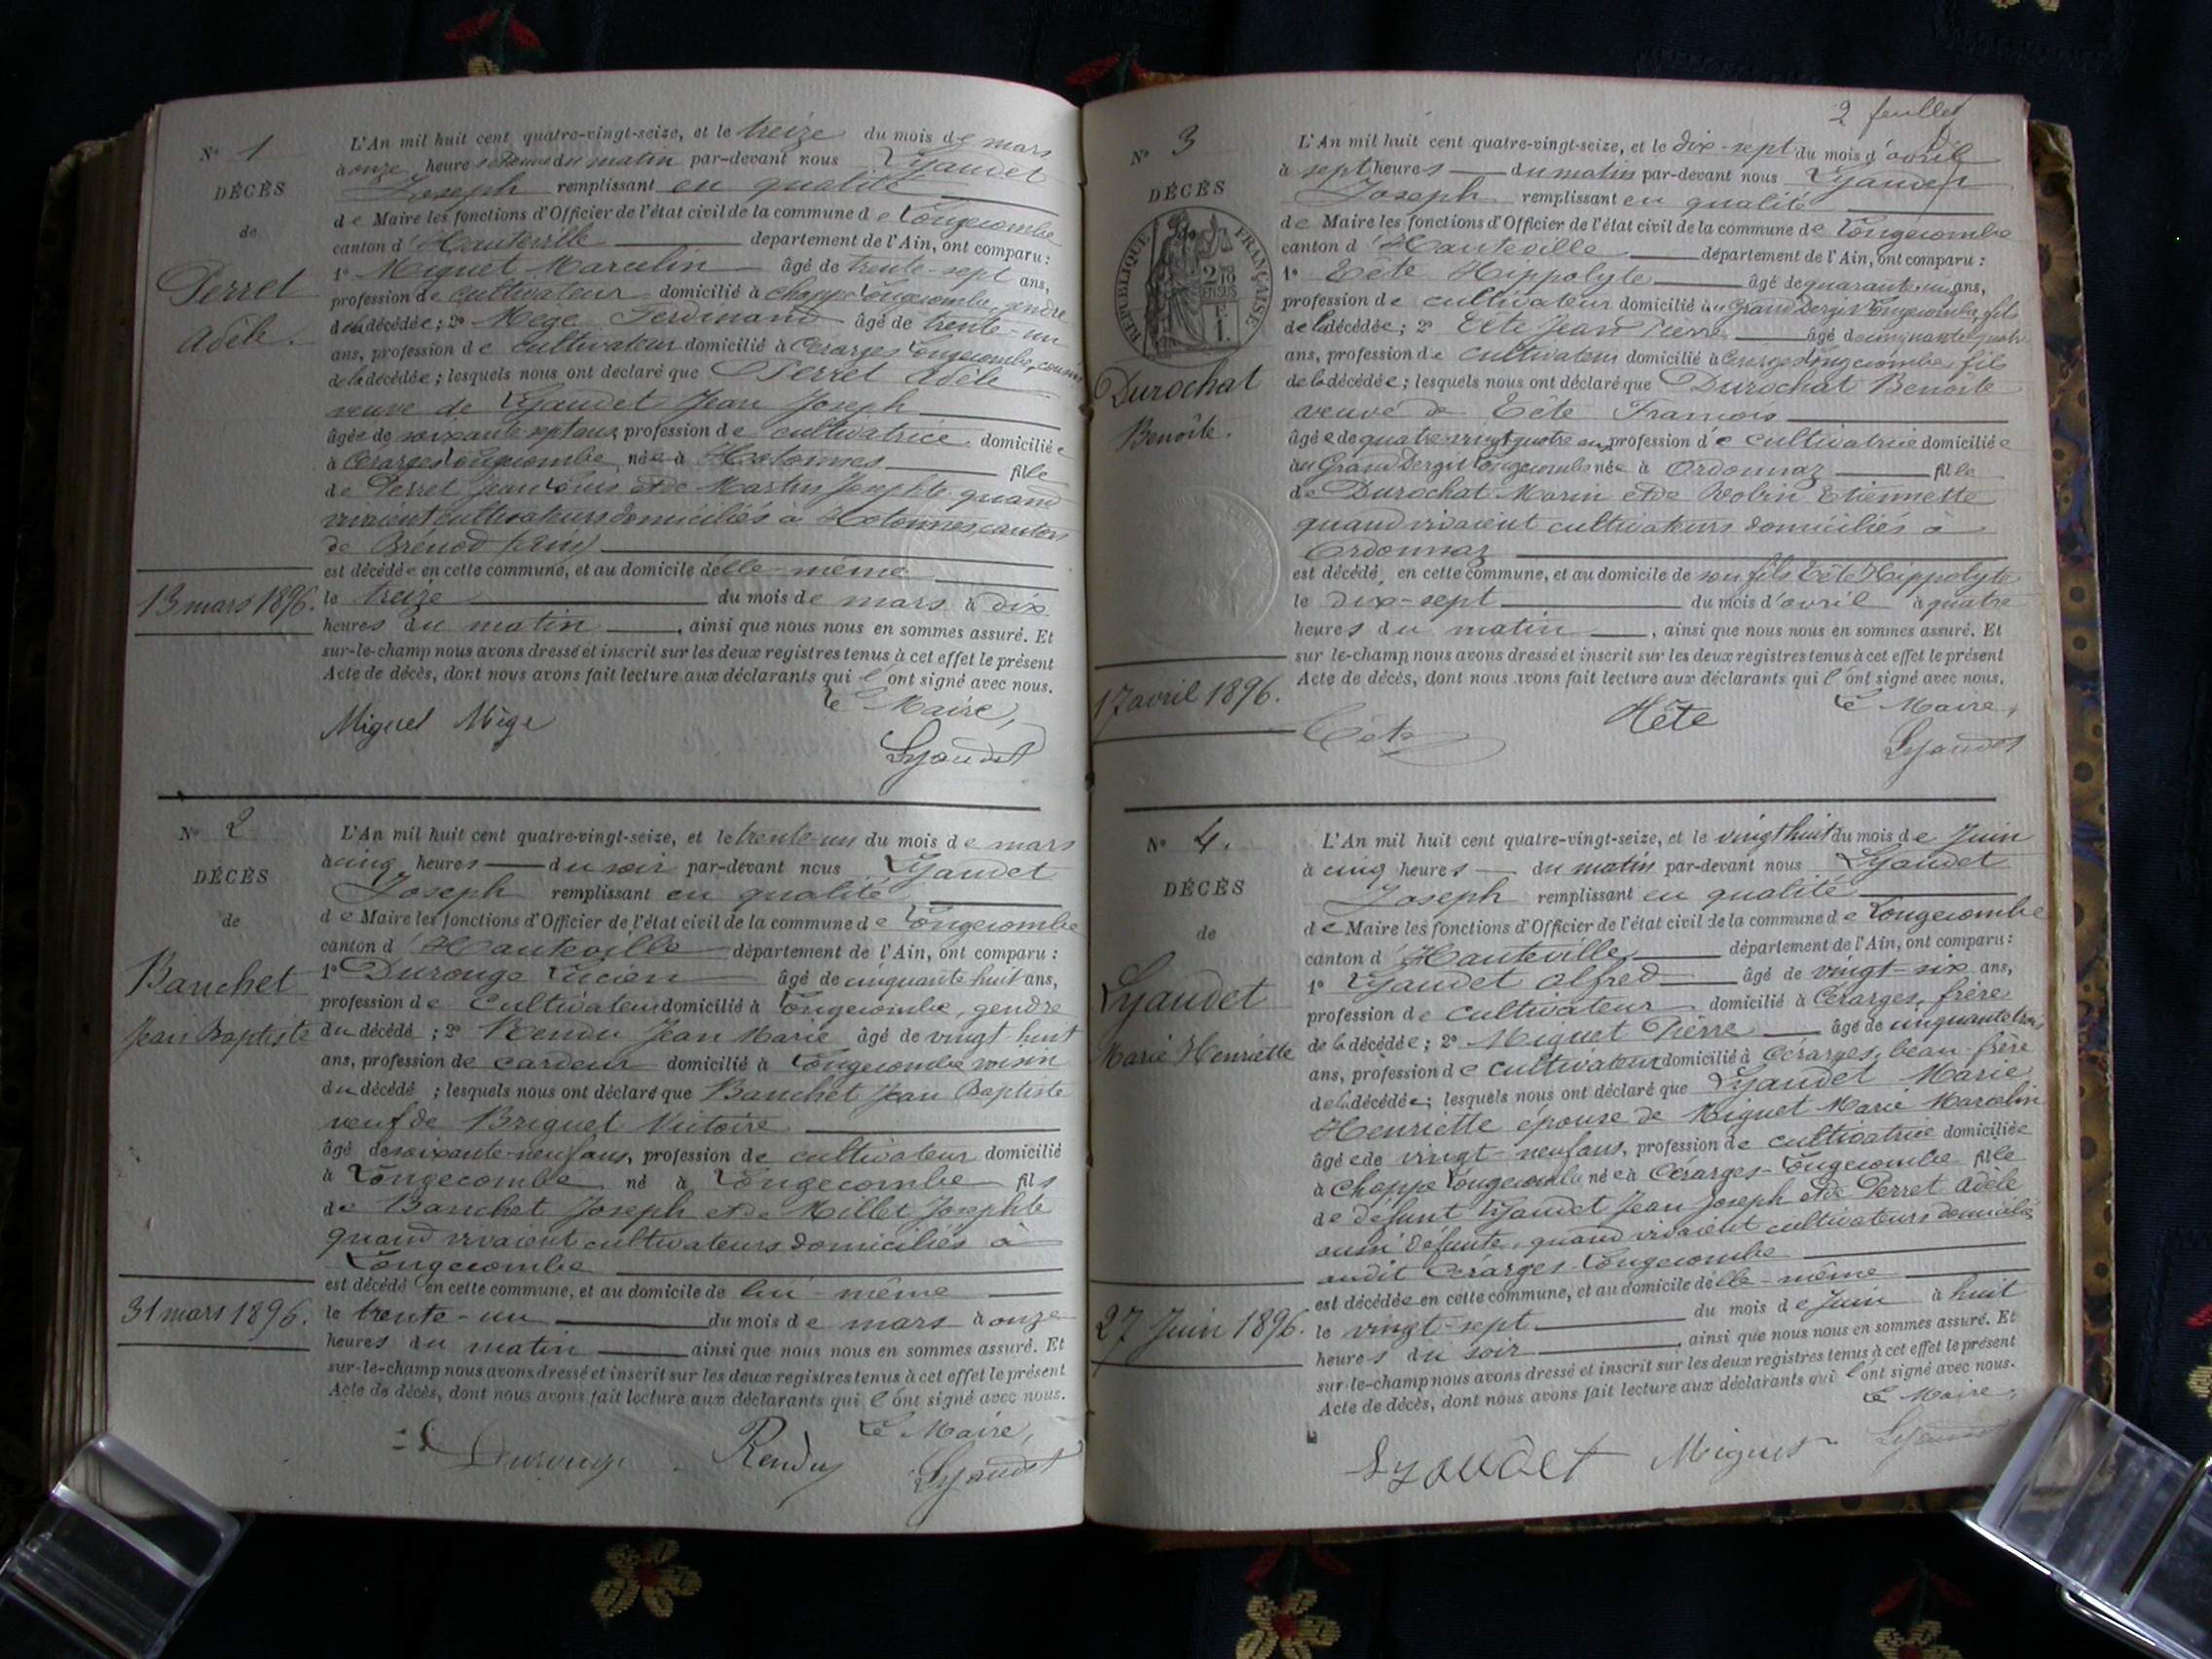 N° 1
DÉCÈS
de
Perret
Adèle.
13 mars 1896.
L'An mil huit cent quatre-vingt-seize, et le treize du mois de mars
à onze heures du matin par-devant nous Lyaudet
Joseph remplissant en qualité
de Maire les fonctions d'Officier de l'état civil de la commune de Longecombe
canton d'Hauteville departement de l'Ain, ont comparu :
1° Miguet Marcelin âgé de trente-sept ans,
profession de cultivateur domicilié à chappe Longecombe, gendre
de la décédée ; 2° Mege Ferdinand âgé de trente-un
ans, profession de cultivateur domicilié à Cérarges Longecombe, cousin
de la décédée ; lesquels nous ont déclaré que Perret Adèle
veuve de Lyaudet Jean Joseph
âgée de soixante sept ans, profession de cultivatrice domiciliée
à Cerarges Longecombe, née à Hotonnes fille
de Perret Jean Louis et de Martin Josephte quand
vivaient cultivateurs domiciliés à Hotonnes, canton
de Brénod (Ain)
est décédée en cette commune, et au domicile d'elle-même
le treize du mois de mars à dix
heures du matin, ainsi que nous nous en sommes assuré. Et
sur-le-champ nous avons dressé et inscrit sur les deux registres tenus à cet effet le présent
Acte de décès, dont nous avons fait lecture aux déclarants qui l'ont signé avec nous.
Le Maire,
Miguet Mège
Lyaudet
N° 2
DÉCÈS
de
Banchet
Jean Baptiste
31 mars 1896.
L'An mil huit cent quatre-vingt-seize, et le trente-un du mois de mars
à cinq heures du soir par-devant nous Lyaudet
Joseph remplissant en qualité
de Maire les fonctions d'Officier de l'état civil de la commune de Longecombe
canton d'Hauteville département de l'Ain, ont comparu :
1° Durouge Lucien âgé de cinquante huit ans,
profession de cultivateur domicilié à Longecombe, gendre
du décédé ; 2° Rendu Jean Marie âgé de vingt huit
ans, profession de cardeur domicilié à Longecombe voisin
du décédé ; lesquels nous ont déclaré que Banchet Jean Baptiste
veuf de Briguet Victoire
âgé de soixante-neuf ans, profession de cultivateur domicilié
à Longecombe, né à Longecombe fils
de Banchet Joseph et de Millet Josephte
quand vivaient cultivateurs domiciliés à
Longecombe
est décédé en cette commune, et au domicile de lui-même
le trente-un du mois de mars à onze
heures du matin ainsi que nous nous en sommes assuré. Et
sur-le-champ nous avons dressé et inscrit sur les deux registres tenus à cet effet le présent
Acte de décès, dont nous avons fait lecture aux déclarants qui l'ont signé avec nous.
Le Maire,
Durouge Rendu Lyaudet
2 feuillet
N° 3
DÉCÈS
RÉPUBLIQUE FRANÇAISE
Durochat
Benoîte.
17 avril 1896.
L'An mil huit cent quatre-vingt-seize, et le dix-sept du mois d'avril
à sept heures du matin par-devant nous Lyaudet
Joseph remplissant en qualité
de Maire les fonctions d'Officier de l'état civil de la commune de Longecombe
canton d'Hauteville département de l'Ain, ont comparu :
1° Tête Hippolyte âgé de quarante-un ans,
profession de cultivateur domicilié au Grand Dergit Longecombe, fils
de la décédée ; 2° Tête Jean Pierre âgé de cinquante-quatre
ans, profession de cultivateur domicilié à Cerarges Longecombe, fils
de la décédée ; lesquels nous ont déclaré que Durochat Benoite
veuve de Tête François
âgée de quatre-vingt quatre ans, profession de cultivatrice domiciliée
au Grand Dergit Longecombe née à Ordonnaz fille
de Durochat Marin et de Robin Etiennette
quand vivaient cultivateurs domiciliés à
Ordonnaz
est décédé, en cette commune, et au domicile de son fils Tête Hippolyte
le dix-sept du mois d'avril à quatre
heures du matin, ainsi que nous nous en sommes assuré. Et
sur le-champ nous avons dressé et inscrit sur les deux registres tenus à cet effet le présent
Acte de décès, dont nous avons fait lecture aux déclarants qui l'ont signé avec nous.
Le Maire,
Tête Hête Lyaudet
N° 4.
DÉCÈS
de
Lyaudet
Marie Henriette
27 Juin 1896.
L'An mil huit cent quatre-vingt-seize, et le vingt huit du mois de Juin
à cinq heures du matin par-devant nous Lyaudet
Joseph remplissant en qualité
de Maire les fonctions d'Officier de l'état civil de la commune de Longecombe
canton d'Hauteville département de l'Ain, ont comparu :
1° Lyaudet Alfred âgé de vingt-six ans,
profession de cultivateur domicilié à Cérarges, frère
de la décédée ; 2° Miguet Pierre âgé de cinquante trois
ans, profession de cultivateur domicilié à Cérarges, beau frère
de la décédée ; lesquels nous ont déclaré que Lyaudet Marie
Henriette épouse de Miguet Marie Marcelin
âgée de vingt-neuf ans, profession de cultivatrice domiciliée
à Chappe Longecombe née à Cérarges-Longecombe fille
de défunt Lyaudet Jean Joseph et de Perret Adèle
aussi défunte, quand vivaient cultivateurs domiciliés
audit Cerarges-Longecombe
est décédée en cette commune, et au domicile d'elle-même
le vingt-sept du mois de Juin à huit
heures du soir, ainsi que nous nous en sommes assuré. Et
sur-le-champ nous avons dressé et inscrit sur les deux registres tenus à cet effet le présent
Acte de décès, dont nous avons fait lecture aux déclarants qui l'ont signé avec nous.
Le Maire,
Lyaudet Miguet Lyaudet